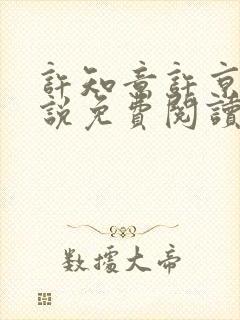 許知意許京
說免費閱讀
數據大帝